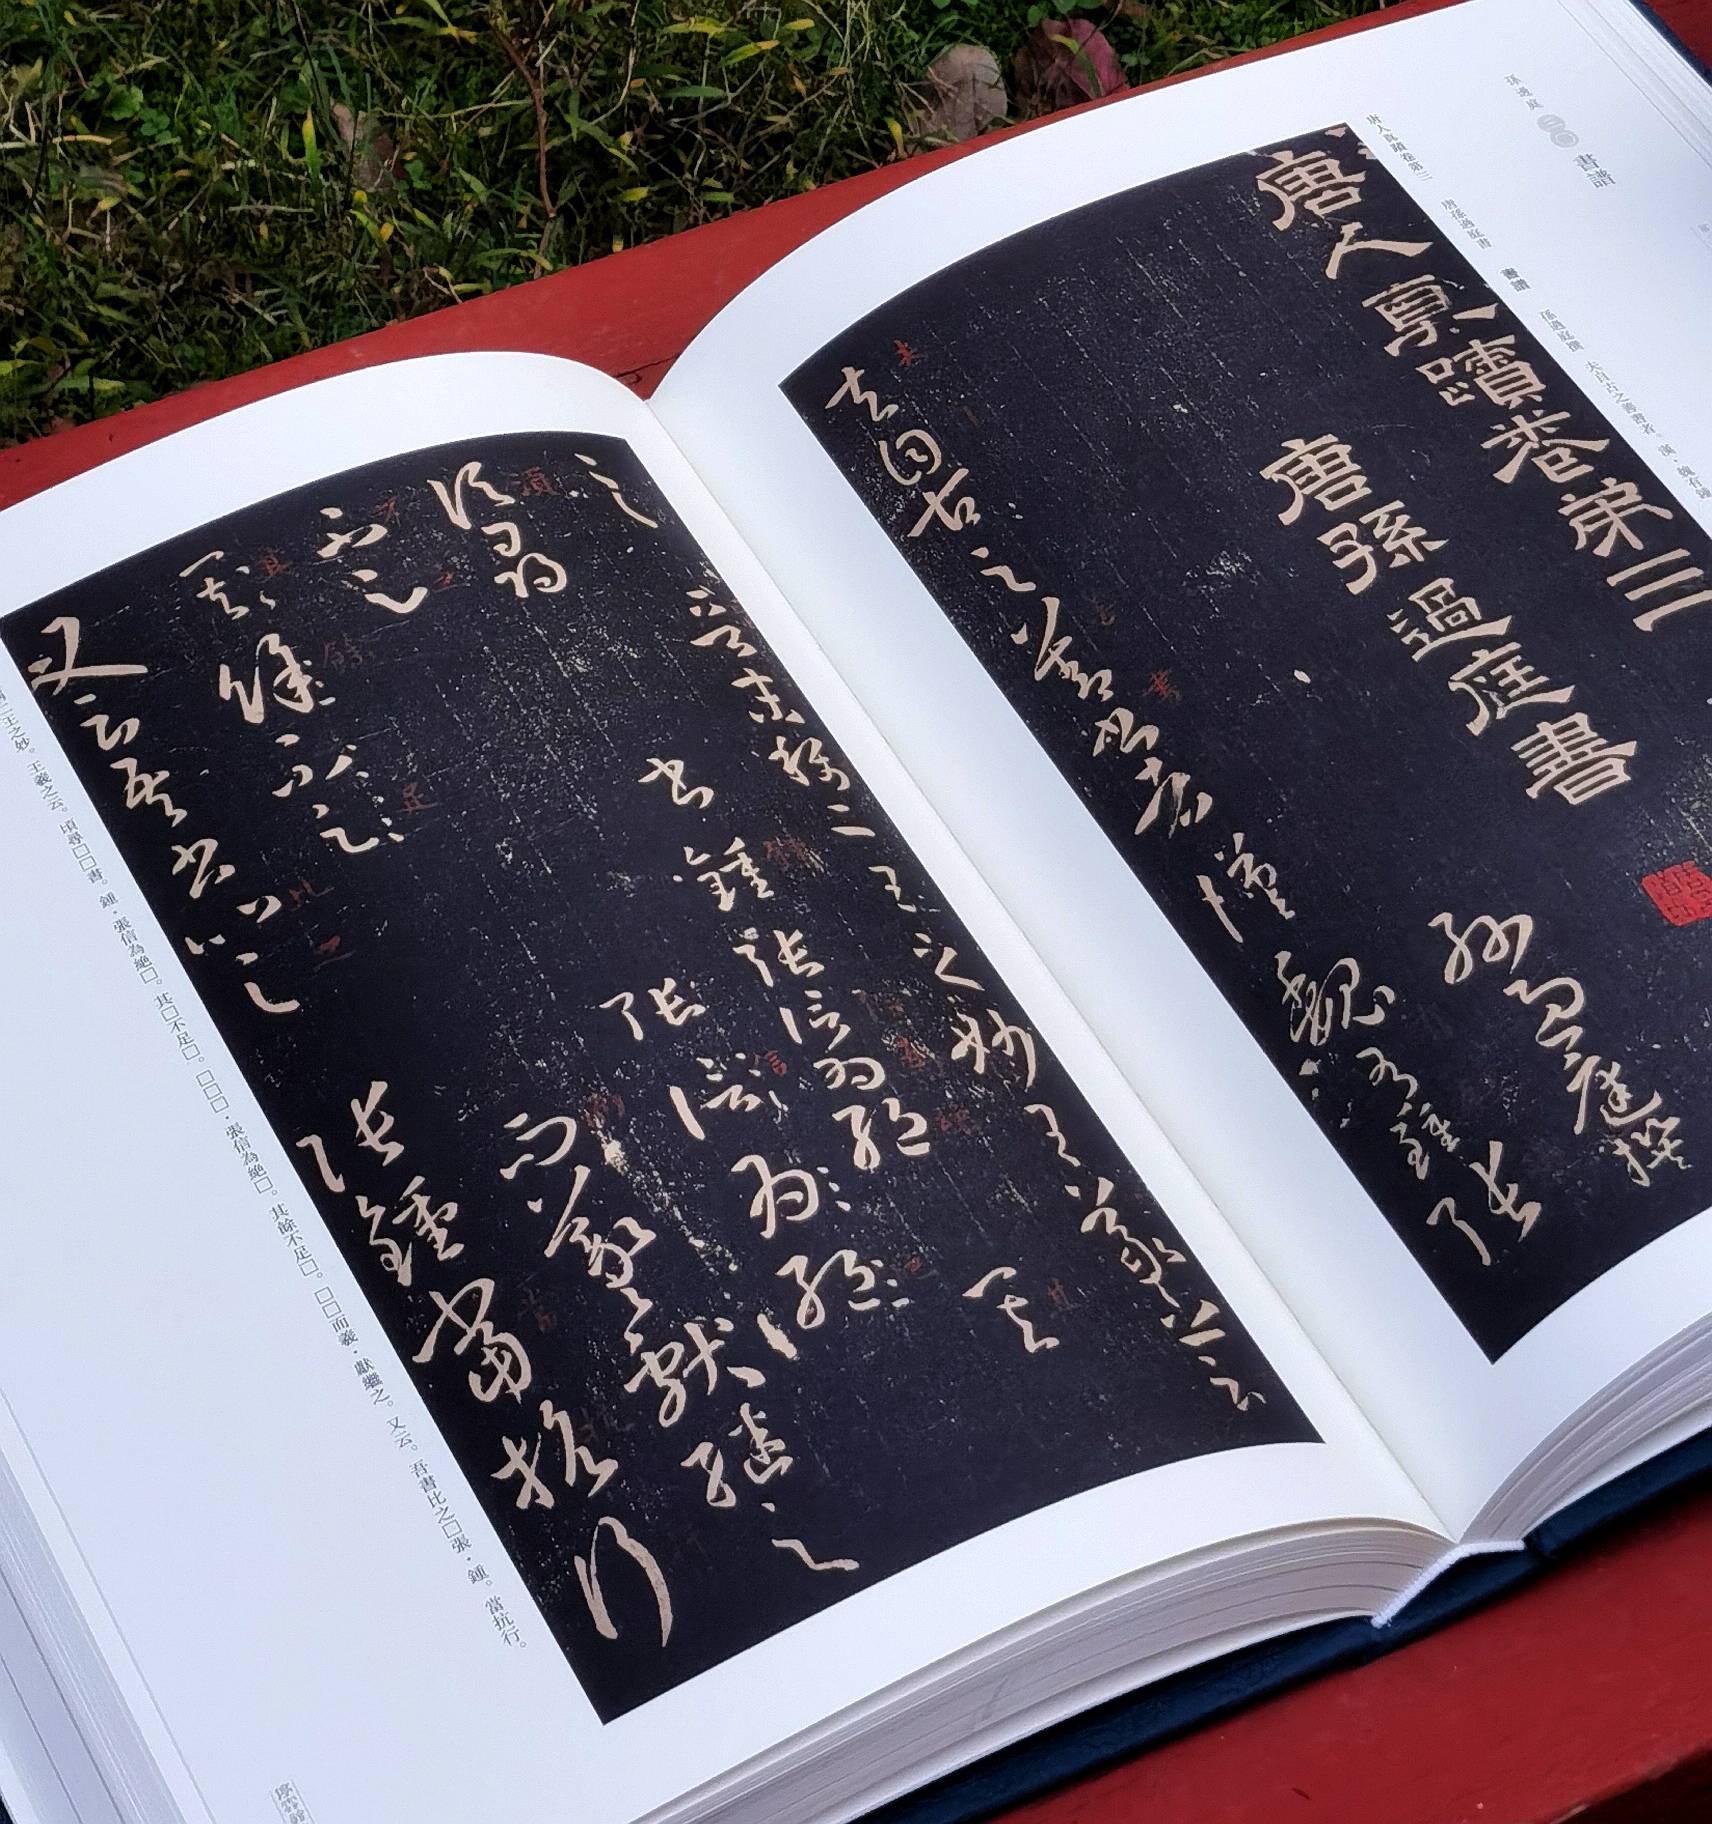 孫過庭
書譜
唐人真蹟卷第三 唐孫過庭書 書譜 孫過庭撰 夫自古之善書者。漢・魏有鍾
唐人真蹟卷弟三
唐孫過庭書
孫過庭撰
夫自古之善書者漢魏有鍾張
之
晉末稱二王之妙王羲之云
頃尋 書鍾張信為絕 其
不足 張信為絕
其餘不足 而羲獻繼之
又云吾書比之 張鍾當抗行
二王之妙。王羲之云。頃尋□□書。鍾・張信為絕□。其□不足□。□□□・張信為絕□。其餘不足□。□□而羲・獻繼之。又云。吾書比之□張・鍾。當抗行。